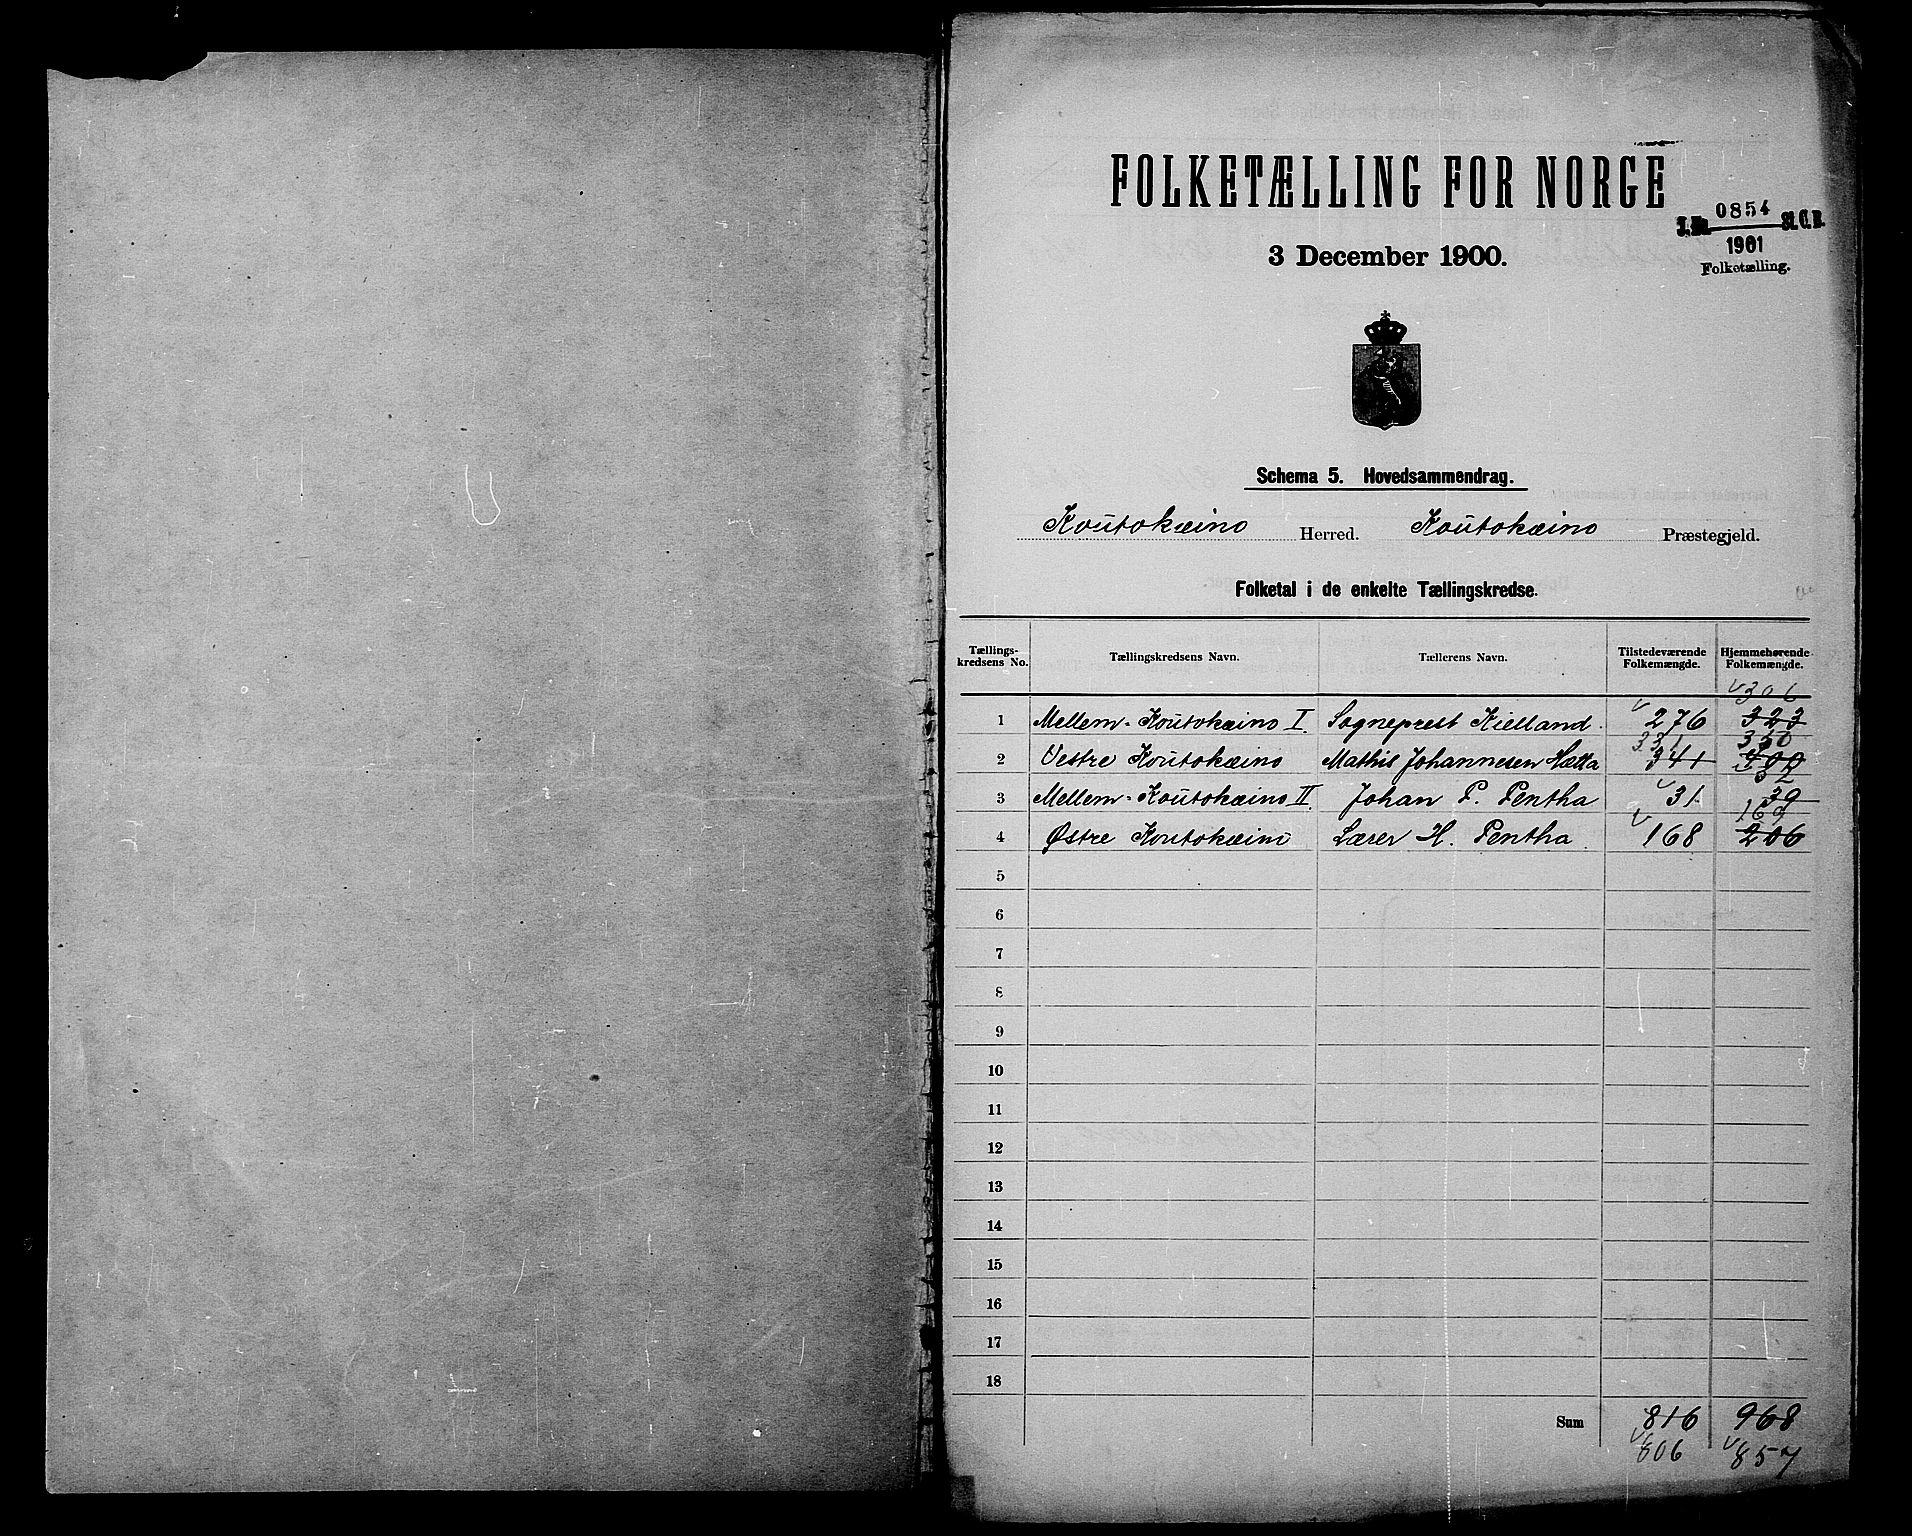 FOLKETÆLLING FOR NORGE
J. No. 0854 St. C. B.
1901
Folketælling.
3 December 1900.
Schema 5. Hovedsammendrag.
Koutokæino Herred. Koutokæino Præstegjeld.
Folketal i de enkelte Tællingskredse.
Tællings-kredsens No. Tællingskredsens Navn. Tællerens Navn. Tilstedeværende Folkemængde. Hjemmehørende Folkemængde.
306
1 Mellem-Koutokæino I. Sogneprest Kielland. 276 323
331 350
2 Vestre Koutokæino Mathis Johannesen Hætta 341 400
32
3 Mellem-Koutokæino II. Johan P. Pentha 31 39
169
4 Østre Koutokæino Lærer H. Pentha. 168 206
5
6
7
8
9
10
11
12
13
14
15
16
17
18
Sum 816 968
806 857